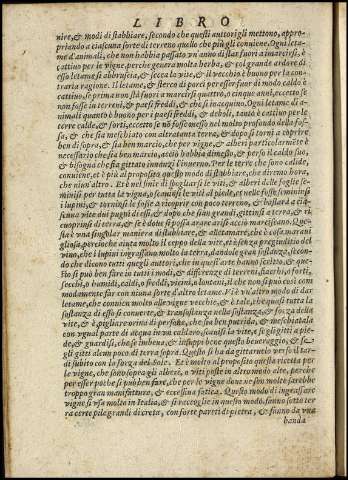 LIBRO
nire, & modi di stabbiare, secondo che questi autori gli mettono, appro-
priando a ciascuna sorte di terreno quello che più gli conuiene. Ogni leta-
me d'animali, che non habbia passato vn'anno di star fuori a marcirsi, è
cattiuo per le vigne, perche genera molta herba, & col grande ardore di
esso letame, si abbruscia, & secca la vite, & il vecchio è buono per la con-
traria ragione. Il letame, & sterco di porci per esser fuor di modo caldo è
cattiuo, se prima non stà fuori a marcirsi quattro, o cinque anni, eccetto se
non fosse in terreni, & paesi freddi, & che si inacquino. Ogni letame di a-
nimali quanto è buono per i paesi freddi, & deboli, tanto è cattiuo per le
terre calde, & forti, eccetto se nõ fosse messo nel molto profondo della fos-
sa, & che sia meschiato con altratanta terra, & dopo si torni a coprire
ben di sopra, & sia ben marcio, che per vigne, & alberi particolarmẽte è
necessario che sia ben marcio, acciò habbia dimesso, & perso il caldo suo,
& bisogna che sia gittato innanzi l'inuerno. Per le terre che sono calde,
conuiene, et è più al proposito questo modo di stabbiare, che diremo hora,
che niun'altro. Et è nel fine di spogliarsi le viti, & alberi delle foglie se-
minisi per tutta la vigna, o scauinsi le viti al piede, et nelle fosse seminisi
i lupini, & torninsi le fosse a ricoprir con poco terreno, & bastarà a cia-
scuna vite dui pugni di essi, & dopo che sian grandi gittinsi a terra, & ri-
cuopransi di terra, & se è doue si possa arare arisi acciò marciscano. Que-
sta è vna singolar maniera di stabbiare, & alletamare, che è cosa maraui
gliosa, percioche aiuta molto il ceppo della vite, et è senza pregiuditio del
vino, che i lupini ingrassano molto la terra, dandole gran sostanza, secon-
do che dicono tutti quegli autori, che in quest'arte hanno scritto, & que-
sto si può ben fare in tutti i modi, & differenze di terreni, fiacchi, o forti,
secchi, o humidi, caldi, o freddi, vicini, o lontani, il che non si può cosi com
modamente far con niuna sorte d'altri letami. Vi è vn'altro modo di dar
letame, che conuien molto alle vigne vecchie, & è tale, che quasi tutta la
sostanza di esso si conuerte, & transostanza nella sostanza, & forza della
vite, & è, pigliare orina di persone, che sia ben putrida, & meschiatala
con vgual parte di acqua in vn caldaro, scauisi la vite, & se gli gitti a pie-
de, & guardisi, che se imbeua, & insuppi bene questo beueraggio, & se
gli gitti alcun poco di terra sopra. Questo si ha da gittar lo verso il tar-
di subito con la forza del Sole. Et è molto a proposito questa ricetta per
le vigne, che sono sopra gli alberi, o viti poste in altro modo alte, perche
per esser poche si può ben fare, che per le vigne doue ne son molte sarebbe
troppo gran manifattura, & eccessiua fatica. Questo modo di ingrassare
vigne si vsa molto in Italia, & si raccoglie in questo modo, fanno sotto ter
ra certe pile grandi di creta, con forte pareti di pietra, & fanno da vna
banda